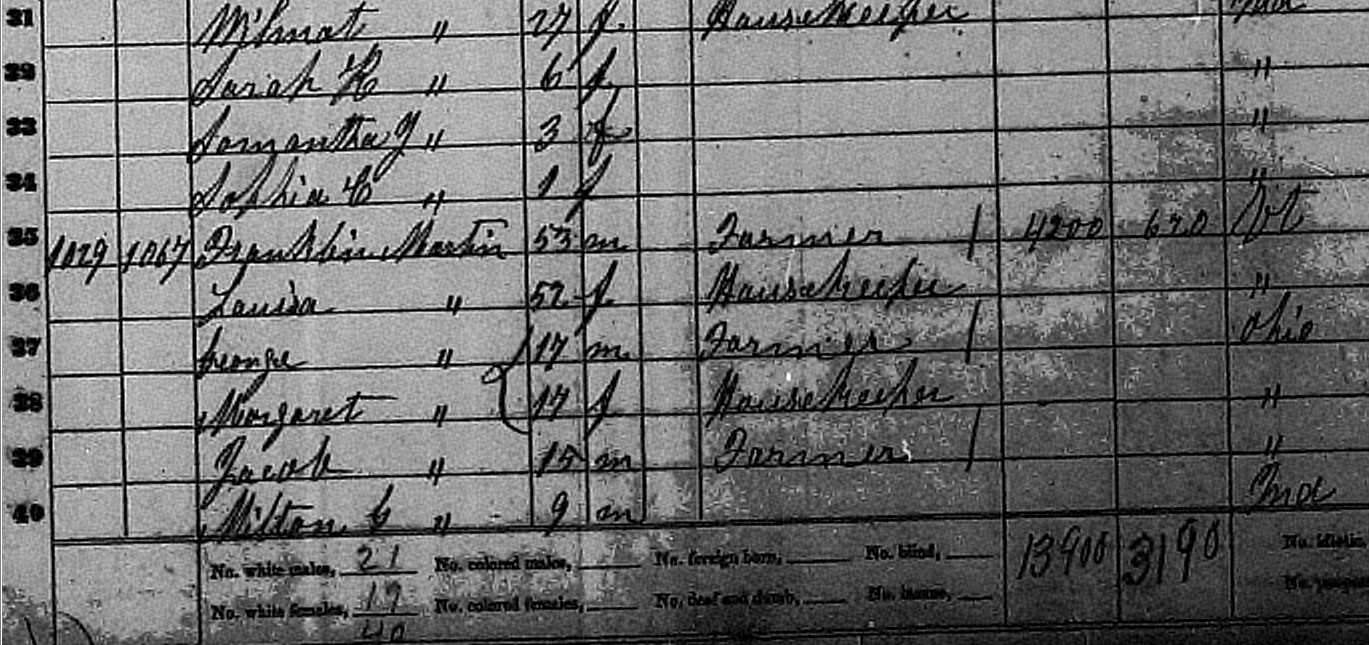 31 Wilmat " 27 f Housekeeper Ind
32 Sarah H " 6 f "
33 Samantha J " 3 f "
34 Sophia C " 1 f "
35 1029 1067 Franklin Martin 53 m Farmer / 4200 620 Vt
36 Louisa " 52 f Housekeeper "
37 George " 17 m Farmer / Ohio
38 Margaret " 17 f Housekeeper "
39 Jacob " 15 m Farmer / "
40 Milton C " 9 m Ind
No. white males, 21 No. colored males, No. foreign born, No. blind, 13900 3190 No. idiotic,
No. white females, 19 No. colored females, No. deaf and dumb, No. insane,
40